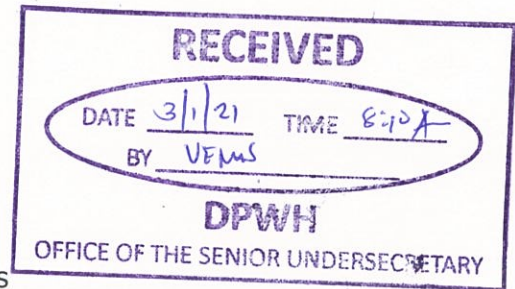 RECEIVED
DATE 3/1/21 TIME 8:10 A
BY VENUS
DPWH
OFFICE OF THE SENIOR UNDERSECRETARY
S